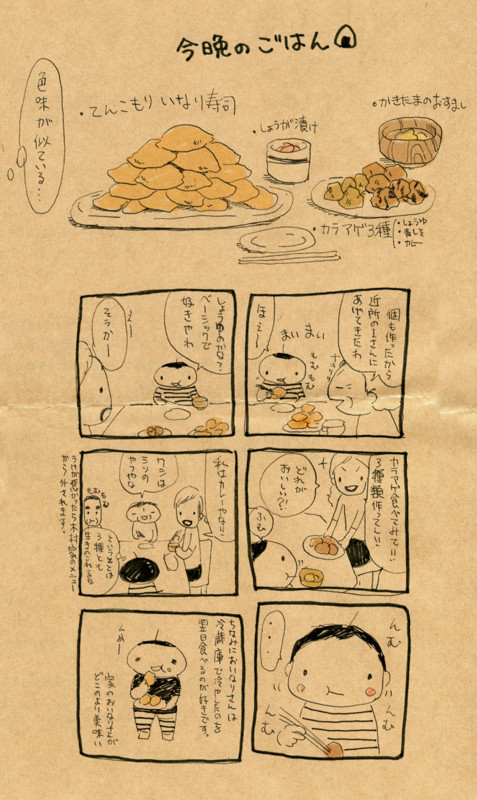 今晩のごはん
色味が似ている…
・てんこもりいなり寿司
・しょうが漬け
・かきたまのおすまし
・カラアゲ3種
・しょうゆ
・青しそ
・カレー
個も作ったから
近所のIさんに
あげてきたわ
まいまい
もむもむ
ほえー
カラアゲ食べてみて!!
3種類作ってん!!
どれが
おいしい??
ふむ
んむ
んむ
んむ
・・・
しょうゆのかな?
ベーシックで
好きやわ
えー
そうかー
私はカレーやな!!
ワシは
シソの
やつやな
もむもむ
ということは
3種とも
生きのこれるな
うけが悪かったら木村家のメニュー
から外されます。
ちなみにおいなりさんは
冷蔵庫で冷やしたのを
翌日食べるのが好きです。
んめー
家のおいなりさんが
どこのより美味い